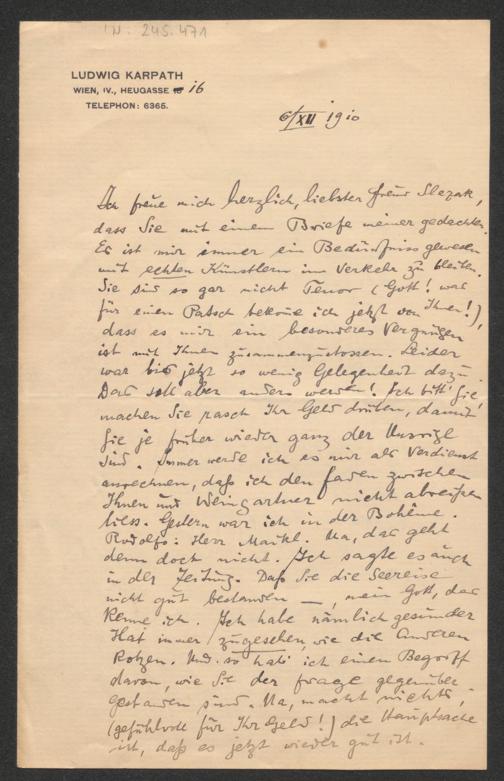 IN: 245.471
LUDWIG KARPATH
WIEN, IV., HEUGASSE 16
TELEPHON: 6365.
6/XII 1910
Ich freue mich herzlich, liebster Freund Slezak,
dass Sie mit einem Briefe meiner gedachten.
Es ist mir immer ein Bedürfniss gewesen
mit echten Künstlern im Verkehr zu bleiben.
Sie sind so gar nicht Tenor (Gott! was
für einen Patsch bekome ich jetzt von Ihnen!),
dass es mir ein besonderes Vergnügen
ist mit Ihnen zusammenzustossen. Leider
war bis jetzt so wenig Gelegenheit dazu.
Das soll aber anders werden! Ich bitt' Sie
machen Sie rasch Ihr Geld drüben, damit
Sie je früher wieder ganz der Unsrige
sind. Immer werde ich es mir als Verdienst
anrechnen, daß ich den Faden zwischen
Ihnen und Weingartner nicht abreißen
liess. Gestern war ich in der Bohême.
Rodolfo: Herr Maikl. Na, das geht
denn doch nicht. Ich sagte es auch
in der Zeitung. Daß Sie die Seereise
nicht gut bestanden —, mein Gott, das
kenne ich. Ich habe nämlich gesunder
Hat immer zugesehen, wie die Anderen
Kotzen. Und so hab ich einen Begriff
davon, wie Sie der Frage gegenüber
gestanden sind. Na, macht nichts,
(gefühlvoll für Ihr Geld!) die Hauptsache
ist, daß es jetzt wieder gut ist.